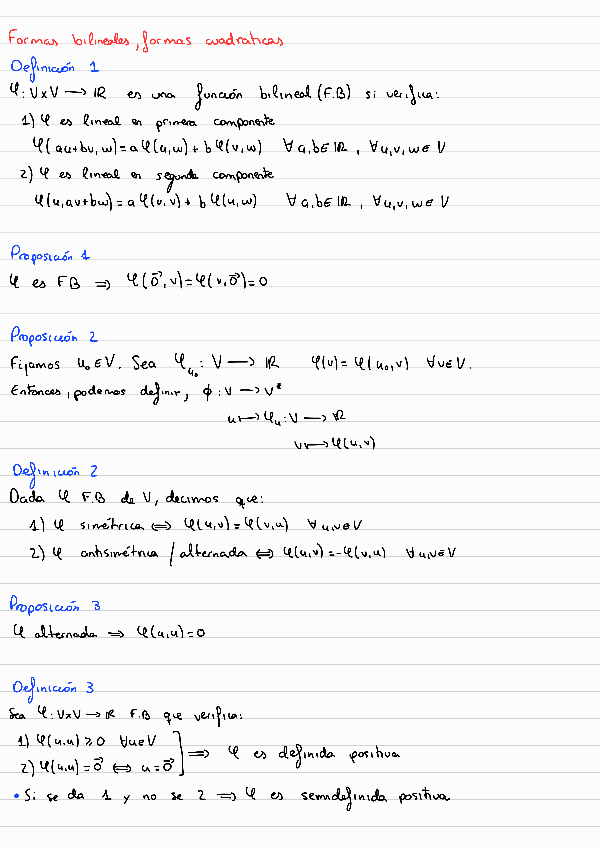 Formas bilineales, formas cuadráticas
Definición 1
φ: V×V → ℝ es una función bilineal (F.B) si verifica:
1) φ es lineal en primera componente
φ(au+bv, w) = aφ(u,w) + bφ(v,w) ∀ a,b ∈ ℝ, ∀ u,v,w ∈ V
2) φ es lineal en segunda componente
φ(u, av+bw) = aφ(u,v) + bφ(u,w) ∀ a,b ∈ ℝ, ∀ u,v,w ∈ V
Proposición 1
φ es F.B ⇒ φ(0⃗, v) = φ(v, 0⃗) = 0
Proposición 2
Fijamos u₀ ∈ V. Sea φ_u₀ : V → ℝ φ(v) = φ(u₀, v) ∀v∈V.
Entonces, podemos definir, ϕ : V → V*
u ↦ φ_u : V → ℝ
v ↦ φ(u,v)
Definición 2
Dada φ F.B de V, decimos que:
1) φ simétrica ⇔ φ(u,v) = φ(v,u) ∀ u,v ∈ V
2) φ antisimétrica / alternada ⇔ φ(u,v) = -φ(v,u) ∀ u,v ∈ V
Proposición 3
φ alternada ⇒ φ(u,u) = 0
Definición 3
Sea φ: V×V → ℝ F.B que verifica:
1) φ(u,u) ≥ 0 ∀u∈V
2) φ(u,u) = 0⃗ ⇔ u = 0⃗ ] ⇒ φ es definida positiva
• Si se da 1 y no se 2 ⇒ φ es semidefinida positiva